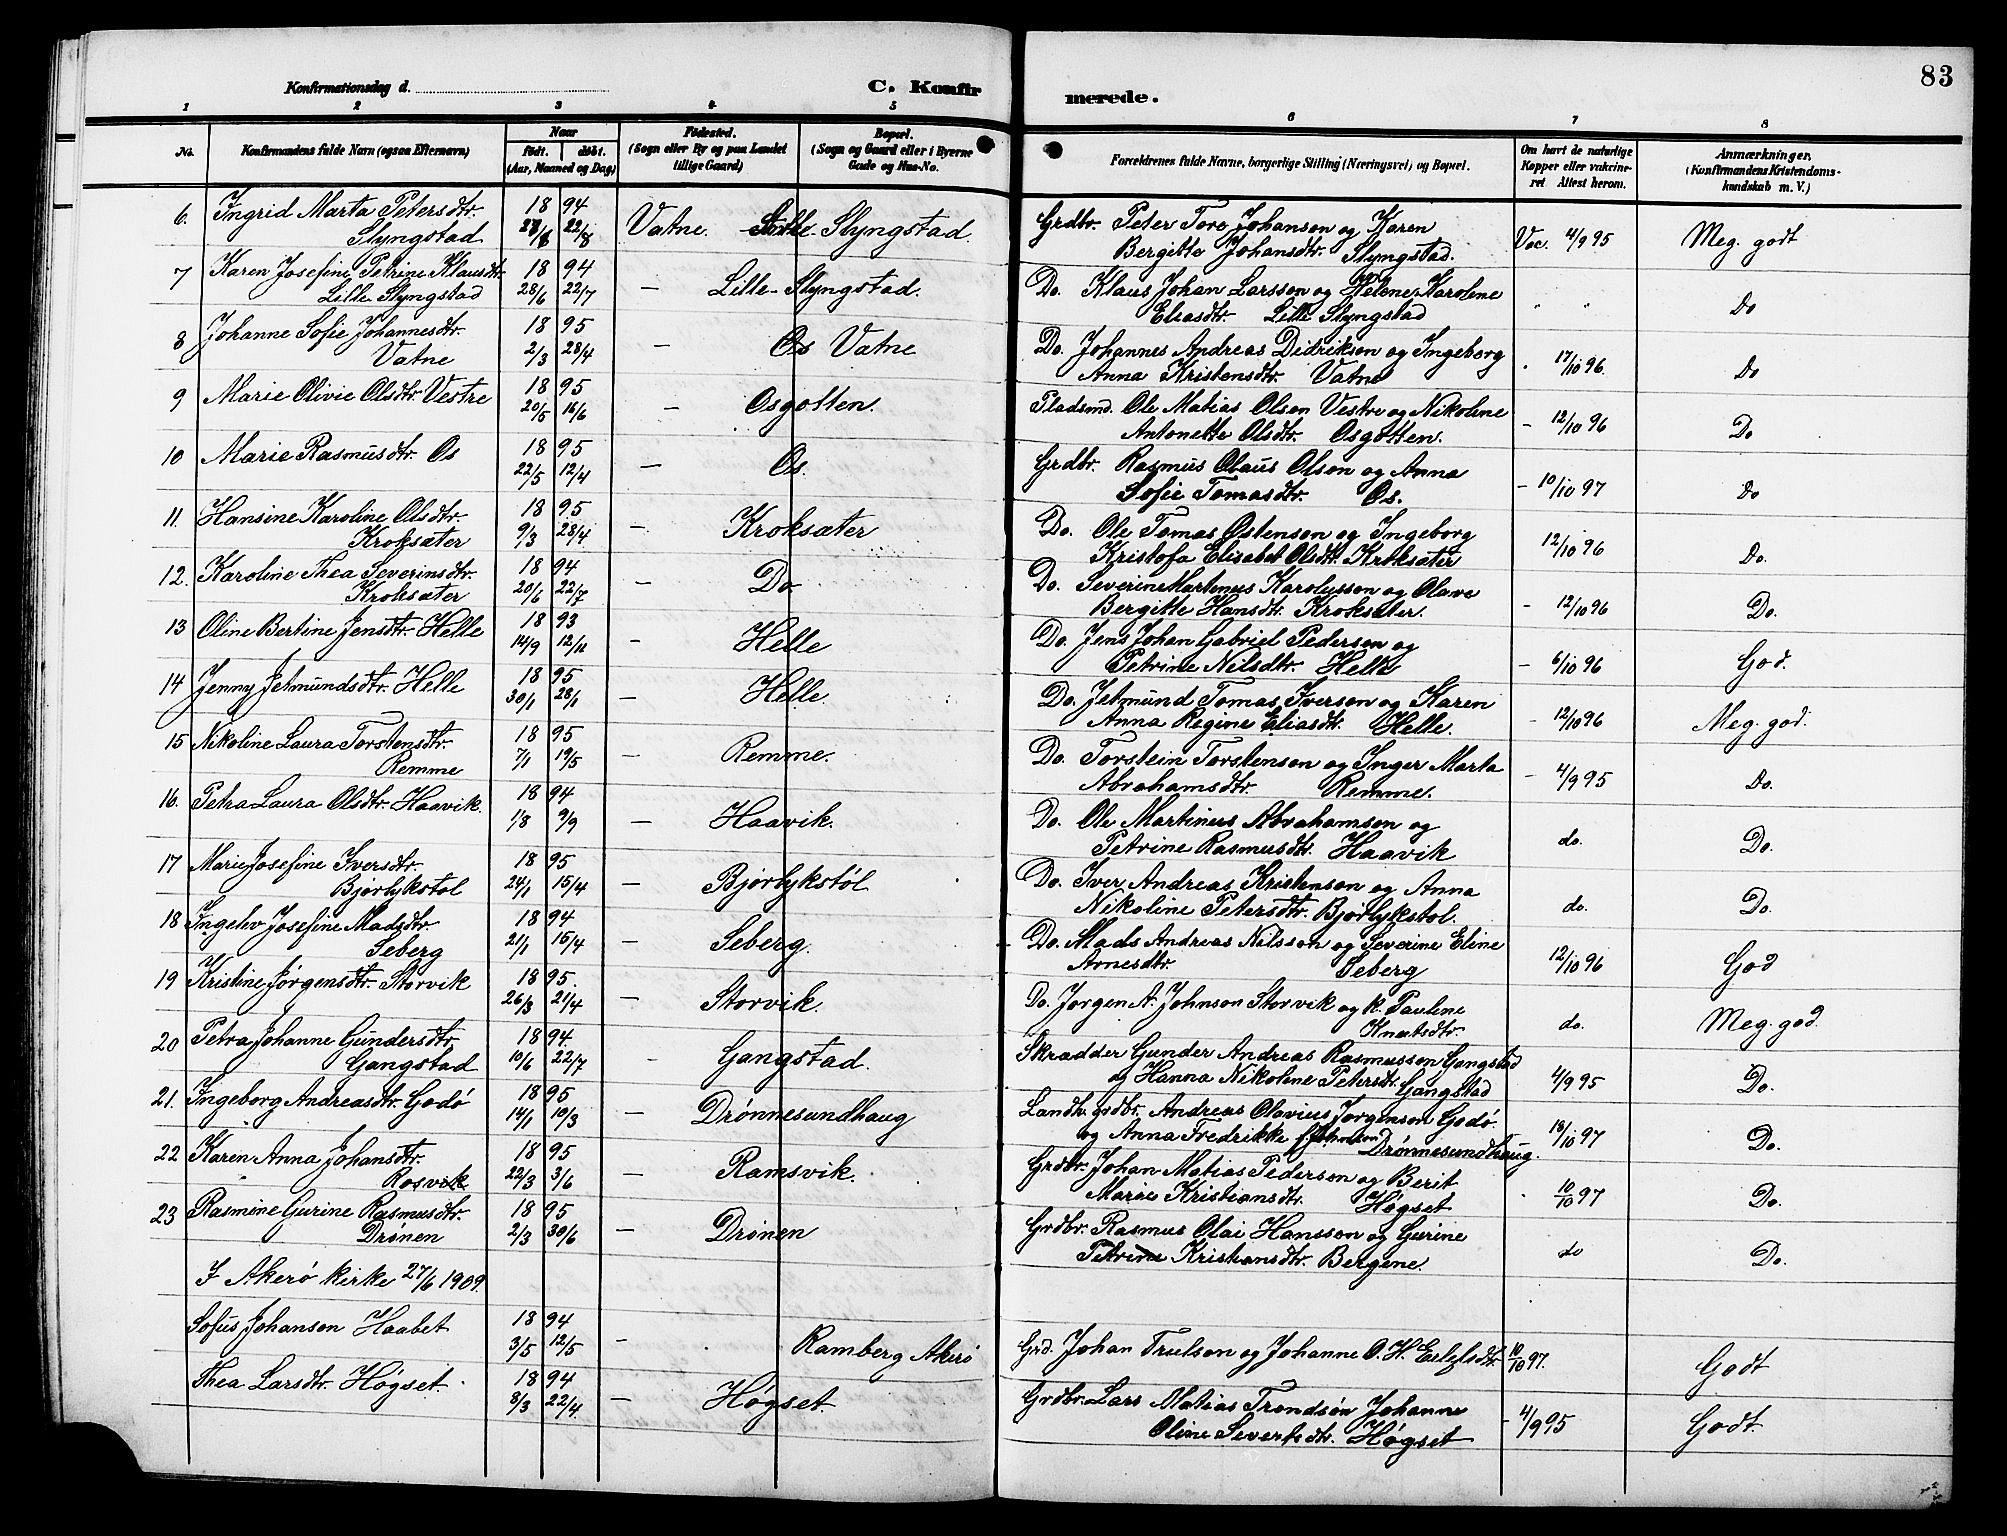 83
Konfirmationsdag d.
C. Konfirmerede.
1 2 3 4 5 6 7 8
No. Konfirmandens fulde Navn (ogsaa Efternavn) Naar født. døbt. (Aar, Maaned og Dag) Fødested. (Sogn eller By og paa Landet tillige Gaard) Bopæl. (Sogn og Gaard eller i Byerne Gade og Hus-No. Forældrenes fulde Navne, borgerlige Stilling (Næringsvei) og Bopæl. Om havt de naturlige Kopper eller vakcineret Attest herom. Anmærkninger. (Konfirmandens Kristendomskundskab m. V.)
6. Ingrid Marta Petersdtr. 18 94 Vatne. Slyngstad. Grdbr. Peter Tore Johanson og Karen Vac. 4/9 95 Meg. godt
Slyngstad 22/8 Bergitte Johansdtr. Slyngstad.
7 Karen Josefine Petrine Klausdtr. 18 94 — Lille-Slyngstad. Do. Klaus Johan Larsson og Helene Karoline " " Do
Lille Slyngstad 28/6 22/7 Eliasdtr. Lille Slyngstad
8 Johanne Sofie Johannesdtr. 18 95 — Os Vatne Do. Johannes Andreas Didrikson og Ingeborg 17/10 96. Do
Vatne 2/3 28/4 Anna Kristensdtr. Vatne
9 Marie Olivie Olsdtr. Vestre 18 95 — Osgotten. Pladsmd. Ole Matias Olson Vestre og Nikoline - 12/10 96 Do
20/5 16/6 Antonette Olsdtr. Osgotten.
10 Marie Rasmusdtr. Os 18 95 — Os. Grdbr. Rasmus Olaus Olson og Anna - 10/10 97 Do
22/5 12/4 Sofie Tomasdtr. Os.
11. Hansine Karoline Olsdtr. 18 95 — Kroksæter Do. Ole Tomas Østenson og Ingeborg 12/10 96 Do.
Kroksæter 9/3 28/4 Kristofa Elisabet Olsdtr. Kroksæter
12. Karoline Thea Severinsdtr. 18 94 — Do. Do. Severin Martinus Karolusson og Olave - 12/10 96 Do.
Kroksæter 20/6 22/7 Bergitte Hansdtr. Kroksæter.
13 Oline Bertine Jensdtr. Helle 18 93 — Helle Do. Jens Johan Gabriel Pederson og - 6/10 96 God.
14/9 12/11 Petrine Nilsdtr. Helle
14 Jenny Jetmundsdtr. Helle 18 95 — Helle. Do. Jetmund Tomas Iverson og Karen - 12/10 96 Meg. god.
30/1 28/1 Anna Regine Eliasdtr. Helle.
15 Nikoline Laura Torstensdtr. 18 95 — Remme. Do. Torstein Torstenson og Inger Marta - 4/9 95 Do.
Remme 7/1 19/5 Abrahamsdtr. Remme.
16. Petra Laura Olsdtr. Haavik. 18 94 — Haavik. Do. Ole Martinus Abrahamson og do. Do.
1/8 9/9 Petrine Rasmusdtr. Haavik
17 Marie Josefine Iversdtr. 18 95 — Bjørlykstøl Do. Iver Andreas Kristenson og Anna do. Do.
Bjørlykstøl 24/1 15/4 Nikoline Petersdtr. Bjørlykstøl.
18 Ingelev Josefine Madsdtr. 18 94 — Seberg. Do. Mads Andreas Nilsson og Severine Eline 12/10 96 God
Seberg 21/1 15/4 Arnesdtr. Seberg
19 Kristine Jørgensdtr. Storvik 18 95. — Storvik. Do. Jørgen A. Johnson Storvik og K. Pauline do. Meg. god.
26/3 21/4 Knutsdtr.
20 Petra Johanne Gundersdtr. 18 94. — Gangstad. Skrædder Gunder Andreas Rasmusson Gangstad 4/9 95 Do.
Gangstad 10/6 22/7 og Hanna Nikoline Petersdtr. Gangstad
21. Ingeborg Andreasdtr. Godø 18 95 — Drønnesundhaug Landh. grdbr. Andreas Olavius Jørgenson Godø. 18/10 97 Do.
14/1 10/3 og Anna Fredrikke f. Johnson Drønnesundhaug.
22 Karen Anna Johansdtr. 18 95 Ramsvik. Grdbr. Johan Matias Pederson og Berit 10/10 97 Do.
Rosvik 22/3 3/6 Marie Kristiansdtr. Høgset
23 Rasmine Gurine Rasmusdtr. 18 95 — Drønen Grdbr. Rasmus Olai Hansson og Gurine do Do.
Drønen 2/3 30/6 Petrine Kristiansdtr. Bergene.
I Akerø kirke 27/6 1909.
Sofus Johanson Haabet 18 94 — Ramberg Akerø Grd. Johan Trulson og Johanne O. H. Eilefsdtr. 10/10 97. Godt
3/5 12/5
Thea Larsdtr. Høgset. 18 94 — Høgset. Grdbr. Lars Matias Trondsøn Johanne - 4/9 95 Godt.
8/3 22/4. Oline Severinsdtr. Høgset